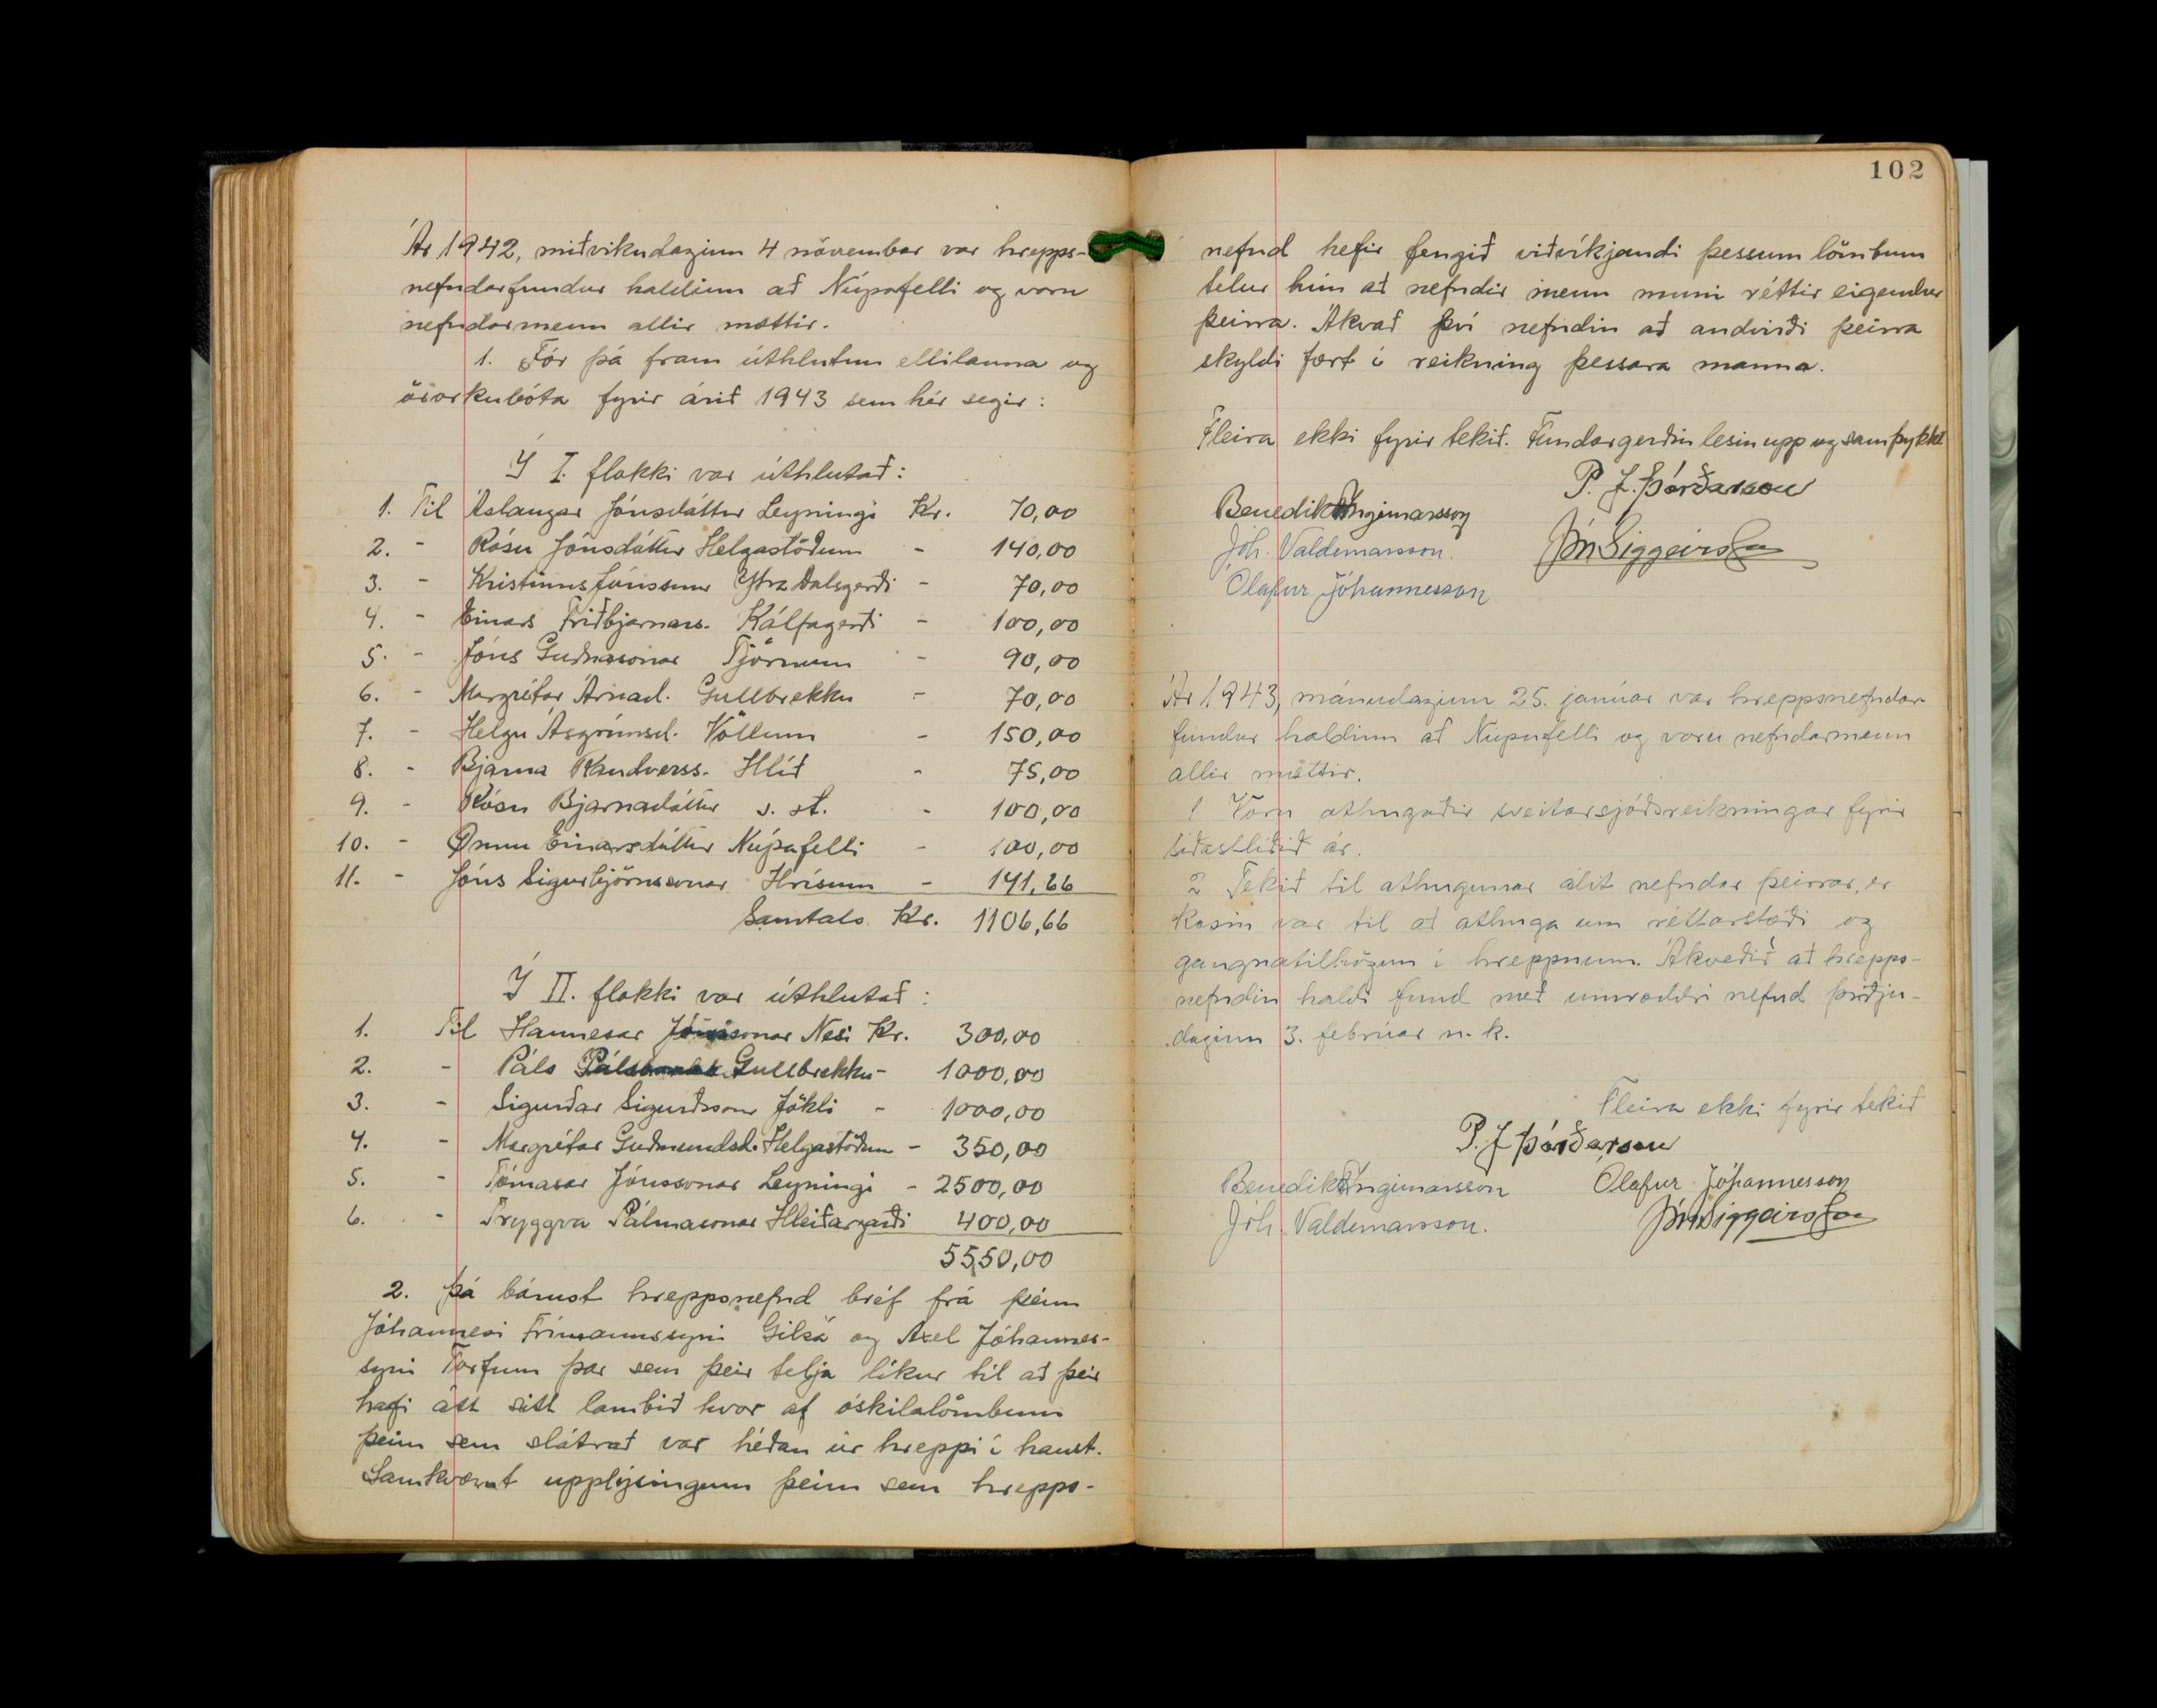 Ár 1942, miðvikudaginn 4 nóvember var hrepps-
nefndarfundur haldinn að Núpufelli og voru
nefndarmenn allir mættir.
1. Fór þá fram úthlutun ellilauna og
örorkubóta fyrir árið 1943 sem hér segir:
Í I. flokki var úthlutað:
1. Til Áslaugar Jónsdóttur Leyningi Kr. 70,00
2. - Rósu Jónsdóttur Helgastöðum - 140,00
3. - Kristinns Jónssonar Ytra Dalsgerði - 70,00
4. - Einars Friðbjarnars. Kálfagerði - 100,00
5. - Jóns Guðnasonar Tjörnum - 90,00
6. - Margrétar Árnad. Gullbrekku - 70,00
7. - Helgu Ásgrímsd. Völlum - 150,00
8. - Bjarna Randverss. Hlíð - 75,00
9. - Rósu Bjarnadóttur s. st. - 100,00
10. - Önnu Einarsdóttur Núpufelli - 100,00
11. - Jóns Sigurbjörnssonar Hrísum - 141,66
Samtals Kr. 1106,66
Í II. flokki var úthlutað:
1. Til Hannesar Jónssonar Nesi Kr. 300,00
2. - Páls Gullbrekku - 1000,00
3. - Sigurðar Sigurðssonar Jökli - 1000,00
4. - Margrétar Guðmundsd. Helgastöðum - 350,00
5. - Tómasar Jónssonar Leyningi - 2500,00
6. - Tryggva Pálmasonar Hleiðargarði 400,00
5550,00
2. Þá bárust hreppsnefnd bréf frá þeim
Jóhannesi Frímannssyni Gilsá og Axel Jóhannes-
syni Torfum þar sem þeir telja líkur til að þeir
hafi átt sitt lambið hvor af óskilalömbum
þeim sem slátrað var héðan úr hreppi í haust.
Samkvæmt upplýsingum þeim sem hrepps-
102
nefnd hefir fengið viðvíkjandi þessum lömbum
telur hún að nefndir menn muni réttir eigendur
þeirra. Ákvað því nefndin að andvirði þeirra
skyldi fært í reikning þessara manna.
Fleira ekki fyrir tekið. Fundargerðin lesin upp og samþykkt
P. J. Þórðarson
Benedikt Ingimarsson
Jón Siggeirsson
Jóh. Valdemarsson.
Ólafur Jóhannesson
Ár 1943, mánudaginn 25. janúar var hreppsnefndar
fundur haldinn að Núpufelli og voru nefndarmenn
allir mættir.
1 Voru athugaðir sveitarsjóðsreikningar fyrir
síðastliðið ár.
2 Tekið til athugunar álit nefndar þeirrar, er
kosin var til að athuga um réttarstæði og
gangnatilhögun í hreppnum. Ákveðið að hrepps-
nefndin haldi fund með umræddri nefnd þriðju-
daginn 3. febrúar n. k.
Fleira ekki fyrir tekið
P. J Þórðarson
Benedikt Ingimarsson Ólafur Jóhannesson
Jóh. Valdemarsson. Jón Siggeirsson